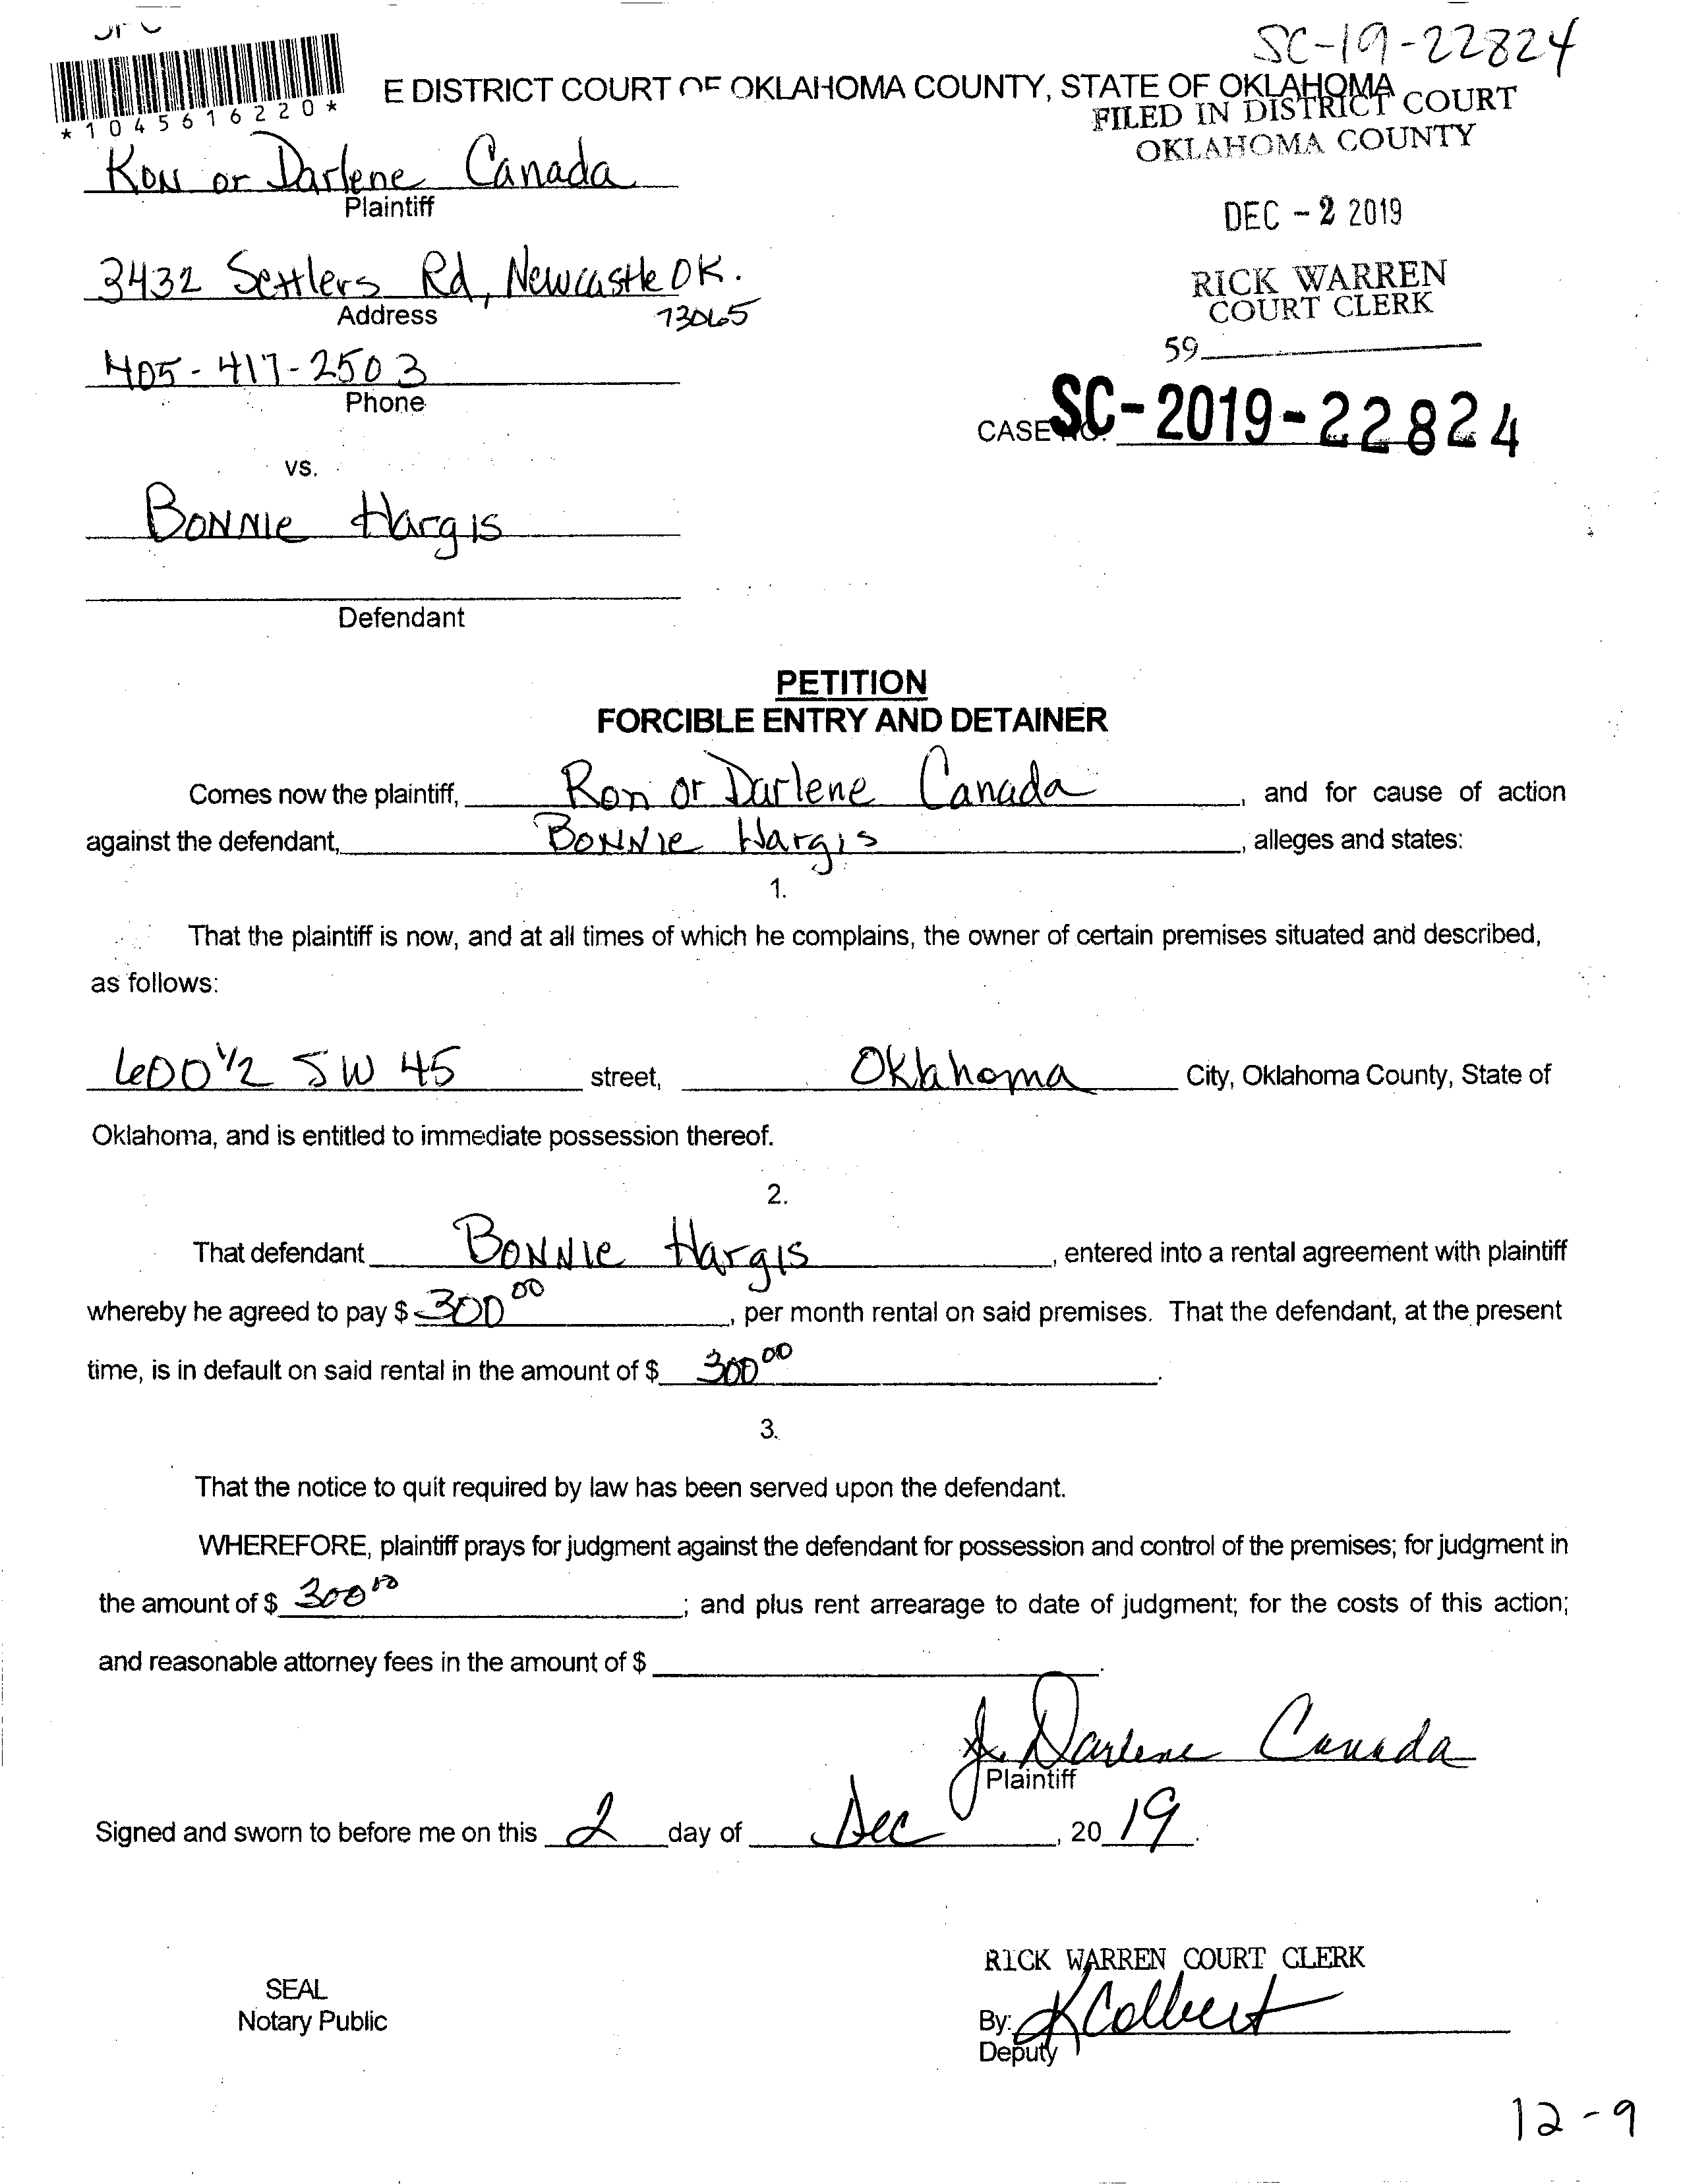 SC-19-22824
*1045616220*
E DISTRICT COURT OF OKLAHOMA COUNTY, STATE OF OKLAHOMA
FILED IN DISTRICT COURT
OKLAHOMA COUNTY
Ron or Darlene Canada
Plaintiff
DEC - 2 2019
3432 Settlers Rd, Newcastle OK.
Address 73065
RICK WARREN
COURT CLERK
59
405-417-2503
Phone
CASE NO. SC-2019-22824
vs.
Bonnie Hargis
Defendant
PETITION
FORCIBLE ENTRY AND DETAINER
Comes now the plaintiff, Ron or Darlene Canada, and for cause of action
against the defendant, Bonnie Hargis, alleges and states:
1.
That the plaintiff is now, and at all times of which he complains, the owner of certain premises situated and described,
as follows:
600 1/2 SW 45 street, Oklahoma City, Oklahoma County, State of
Oklahoma, and is entitled to immediate possession thereof.
2.
That defendant Bonnie Hargis, entered into a rental agreement with plaintiff
whereby he agreed to pay $ 300 00, per month rental on said premises. That the defendant, at the present
time, is in default on said rental in the amount of $ 300 00.
3.
That the notice to quit required by law has been served upon the defendant.
WHEREFORE, plaintiff prays for judgment against the defendant for possession and control of the premises; for judgment in
the amount of $ 300 00; and plus rent arrearage to date of judgment; for the costs of this action;
and reasonable attorney fees in the amount of $ .
J. Darlene Canada
Plaintiff
Signed and sworn to before me on this 2 day of Dec, 20 19.
RICK WARREN COURT CLERK
SEAL
Notary Public
By: K Colbert
Deputy
12-9